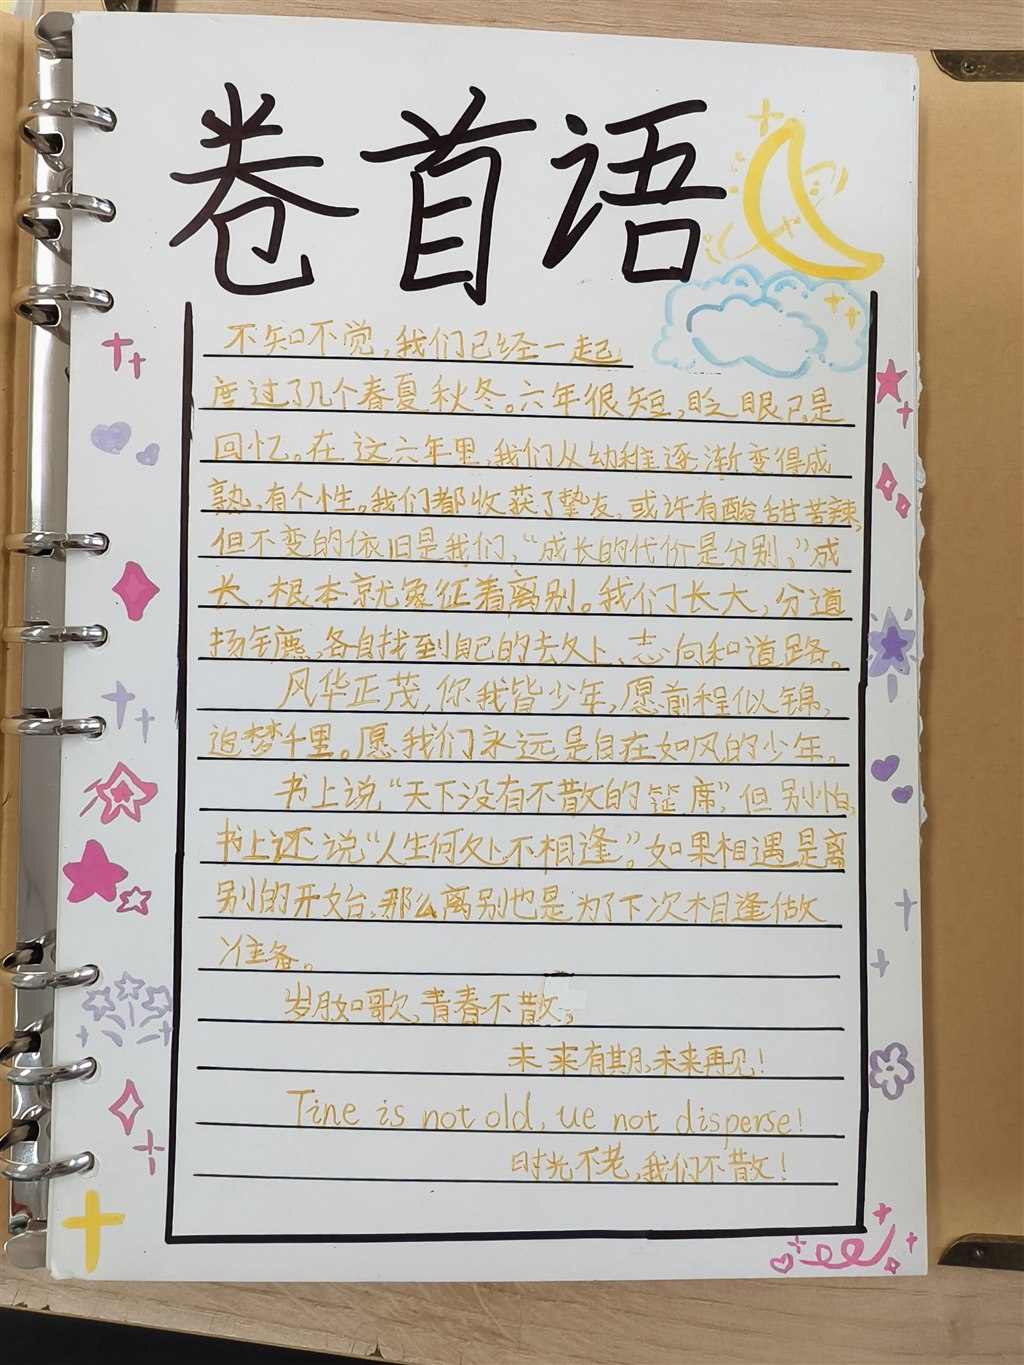 卷首语
不知不觉,我们已经一起
度过了几个春夏秋冬。六年很短,眨眼已是
回忆。在这六年里,我们从幼稚逐渐变得成
熟,有个性。我们都收获了挚友,或许有酸甜苦辣,
但不变的依旧是我们,“成长的代价是分别,”成
长,根本就象征着离别。我们长大,分道
扬镳,各自找到自己的去处、志向和道路。
风华正茂,你我皆少年,愿前程似锦,
追梦千里。愿我们永远是自在如风的少年。
书上说“天下没有不散的筵席”,但别怕,
书上还说“人生何处不相逢”。如果相遇是离
别的开始,那么离别也是为了下次相逢做
准备。
岁月如歌,青春不散,
未来有期,未来再见!
Tine is not old, ue not disperse!
时光不老,我们不散!